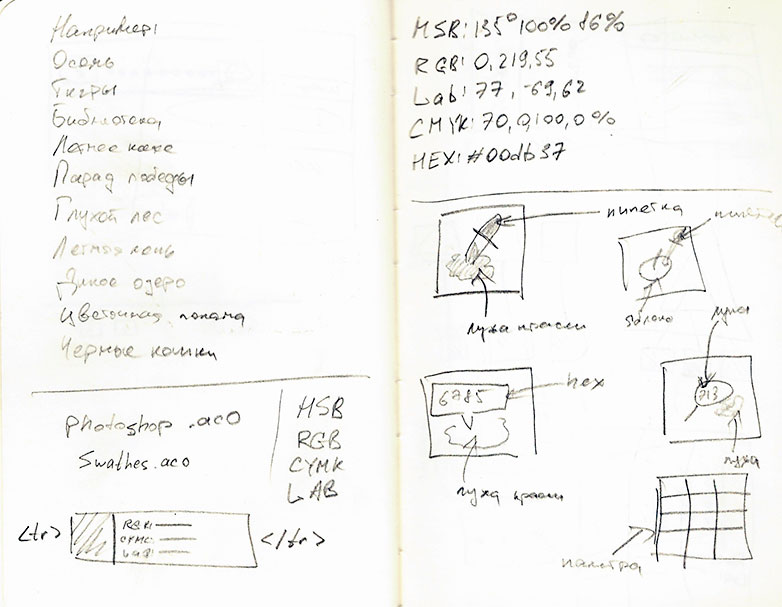 Например:
Осень
Тигры
Библиотека
Летнее
Парад победы
Глухой лес
Летняя
Дикое озеро
Цветочная поляна
Черные кошки
photoshop .aco
Swathes.aco
HSB
RGB
CYMK
LAB
<tr>
RGB:
CYMC:
LAB:
</tr>
HSB: 135° 100% 86%
RGB: 0,219,55
Lab: 77, -69, 62
CMYK: 70,0,100,0%
HEX: #00db37
пипетка
лужа краски
яблоко
hex
6785
лужа краски
лупа
713
лужа
палитра